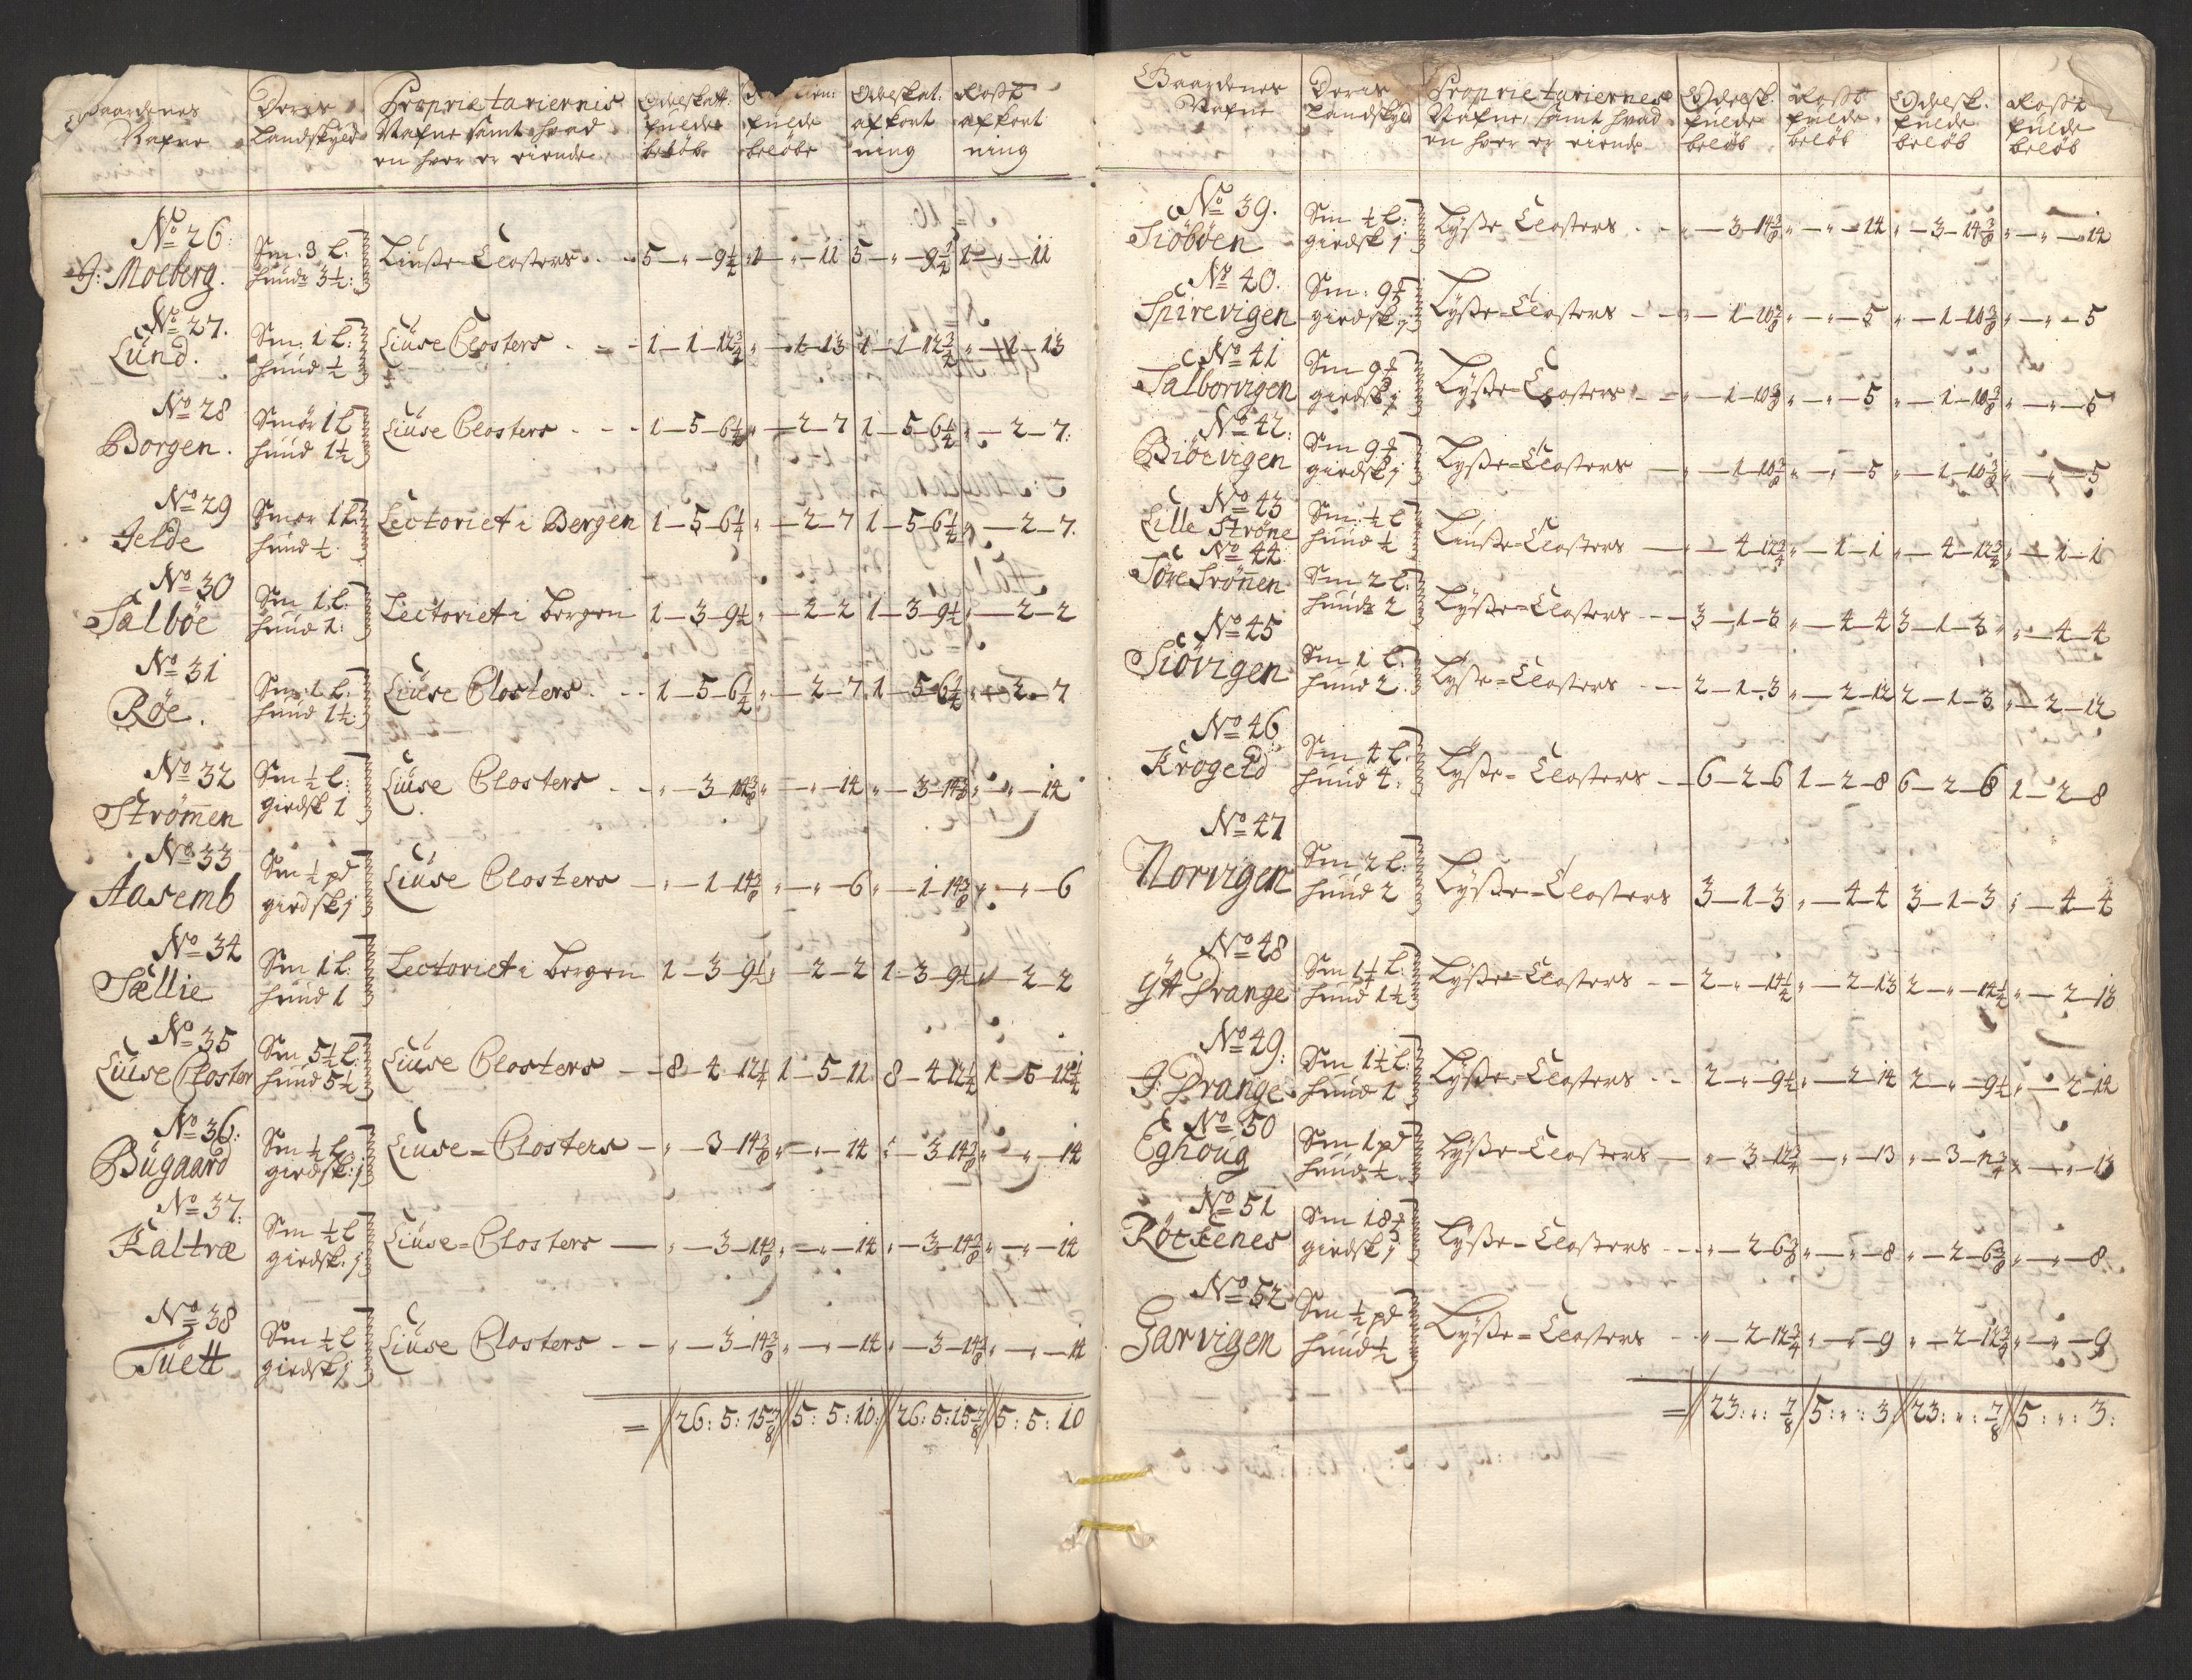 Gaardenes Nafne
Deris Landskyld
Proprietariernis Nafne samt hvad en hver er eiende
Odelskatt: fulde beløb
fulde beløbe
Odelskat: afkortning
Rostt: afkortning
No 26: J: Moeberg. Sm: 3 L: huude 3½: Liuße Closters 5 — " — 9½ 1 — " — 11 5 — " — 9½ 1 — " — 11
No 27. Lund. Sm: 1 L: huud ½ Liuse Closters 1 — 1 — 12¾ " — 1 — 13 1 — 1 — 12¾ " — 1 — 13
No 28 Borgen. Smör 1 L huud 1½ Liuse Closters 1 — 5 — 6½ " — 2 — 7 1 — 5 — 6½ " — 2 — 7:
No 29 Jelde Smör 1 L: huud ½ Lectoriet i Bergen 1 — 5 — 6½ " — 2 — 7 1 — 5 — 6½ " — 2 — 7.
No 30 Sælböe Sm 1 L: huud 1: Lectoriet i bergen 1 — 3 — 9½ " — 2 — 2 1 — 3 — 9½ " — 2 — 2
No 31 Röe. Sm: 1 L: huud 1½: Liuse Closters 1 — 5 — 6½ " — 2 — 7 1 — 5 — 6½ " — 2 — 7
No 32 Strömen Sm ½ L: giedsk 1 Liuse Closters " — 3 — 14⅜ " — " — 14 " — 3 — 14⅜ " — " — 14
No 33 Aasemb Sm ½ pd giedsk j Liuse Closters " — 1 — 14⅜ " — " — 6 " — 1 — 14⅜ " — " — 6
No 34 Sællie Sm 1 L: huud 1 Lectoriet i bergen 1 — 3 — 9½ " — 2 — 2 1 — 3 — 9½ " — 2 — 2
No 35 Liuse Closter Sm 5½ L: huud 5½ Liuse Closters 8 — 4 — 12½ 1 — 5 — 11 8 — 4 — 12½ 1 — 5 — 11
No 36: Bugaard Sm ½ L giedsk: j Liuse Closters " — 3 — 14⅜ " — " — 14 " — 3 — 14⅜ " — " — 14
No 37: Kaltræ Sm ½ L giedsk: j Liuse Closters " — 3 — 14⅜ " — " — 14 " — 3 — 14⅜ " — " — 14
No 38 Tuett Sm ½ L giedsk j Liuse Closters " — 3 — 14⅜ " — " — 14 " — 3 — 14⅜ " — " — 14
= // 26: 5: 15⅞ // 5: 5: 10: // 26: 5: 15⅞ // 5: 5: 10
Gaardenes Nafne
Deris Landskyld
Proprietariernes Nafne, samt hvad en hver er eiende
Odelsk. fulde beløb
Rostt fulde beløb
Odelsk. fulde beløb
Rostt fulde beløb
No 39. Siöböen Sm ½ L: giedsk j Lyße Closters " — 3 — 14⅜ " — " — 14 " — 3 — 14⅜ " — " — 14
No 40. Spirevigen Sm: 9 giedsk j Lyße Closters " — 1 — 10⅜ " — " — 5 " — 1 — 10⅜ " — " — 5
No 41 Salborvigen Sm 9 giedsk j Lyße Closters " — 1 — 10⅜ " — " — 5 " — 1 — 10⅜ " — " — 5
No 42: Biörvigen Sm 9 giedsk j Lyße Closters " — 1 — 10⅜ " — " — 5 " — 1 — 10⅜ " — " — 5
No 43 Lille Ströne Sm: ½ L huud ½ Liuße Closters " — 4 — 12¾ " — 1 — 1 " — 4 — 12¾ " — 1 — 1
No 44 Söre Strönen Sm 2 L: huude 2 Lyße Closters 3 — 1 — 3 " — 4 — 4 3 — 1 — 3 " — 4 — 4
No 45 Siövigen Sm 1 L: huud 2 Lyße Closters 2 — 1 — 3 " — 2 — 12 2 — 1 — 3 " — 2 — 12
No 46 Krogeid Sm 4 L: huud 4: Lyße Closters 6 — 2 — 6 1 — 2 — 8 6 — 2 — 6 1 — 2 — 8
No 47 Norvigen Sm 2 L: huud 2 Lyße Closters 3 — 1 — 3 " — 4 — 4 3 — 1 — 3 " — 4 — 4
No 48 Ytt Drange Sm 1¼ L: huud 1½ Lyße Closters 2 — " — 14½ " — 2 — 13 2 — " — 14½ " — 2 — 13
No 49: J: Drange Sm 1½ L: huud 1 Lyße Closters 2 — " — 9½ " — 2 — 14 2 — " — 9½ " — 2 — 14
No 50 Eghoug Sm 1 pd huud ½ Lyße Closters " — 3 — 12¾ " — " — 13 " — 3 — 12¾ " — " — 13
No 51 Röttenes Sm 18 giedsk j Lyße Closters " — 2 — 6⅜ " — " — 8 " — 2 — 6⅜ " — " — 8.
No 52 Garvigen Sm ½ pd huud ½ Lyße Closters " — 2 — 12¾ " — " — 9 " — 2 — 12¾ " — " — 9
= // 23: ": ⅞ // 5: ": 3 // 23: ": ⅞ // 5: ": 3: